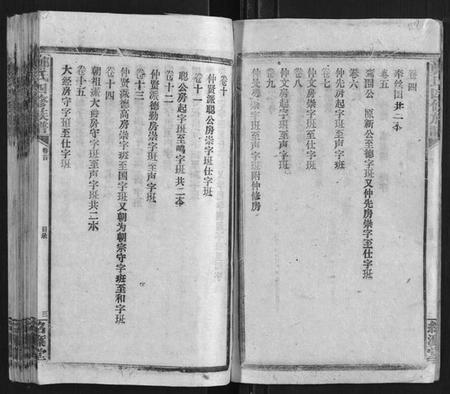 卷四
奉絲圖共二本
卷五
鳳團公原新公至德字班又仲先房崇字至仕字班
卷六
仲先房起字班至声字班
卷七
仲文房崇字班至仕字班
卷八
仲文房起字班至声字班
卷九
仲文房崇字班至声字班附仲修房
卷十
仲贤派聪公房崇字至仕字班
卷十一
聪公房起字班至鳴字班共二本
卷十二
仲贤派德勤房崇字班至声字班
卷十三
仲贤派德高房崇字班至国字班又朝为朝宗守字班至和字班
卷十四
朝祖派大爵房守字班至声字班共二本
卷十五
大經房守字班至仕字班
氏四修族譜
卷首
目录
三